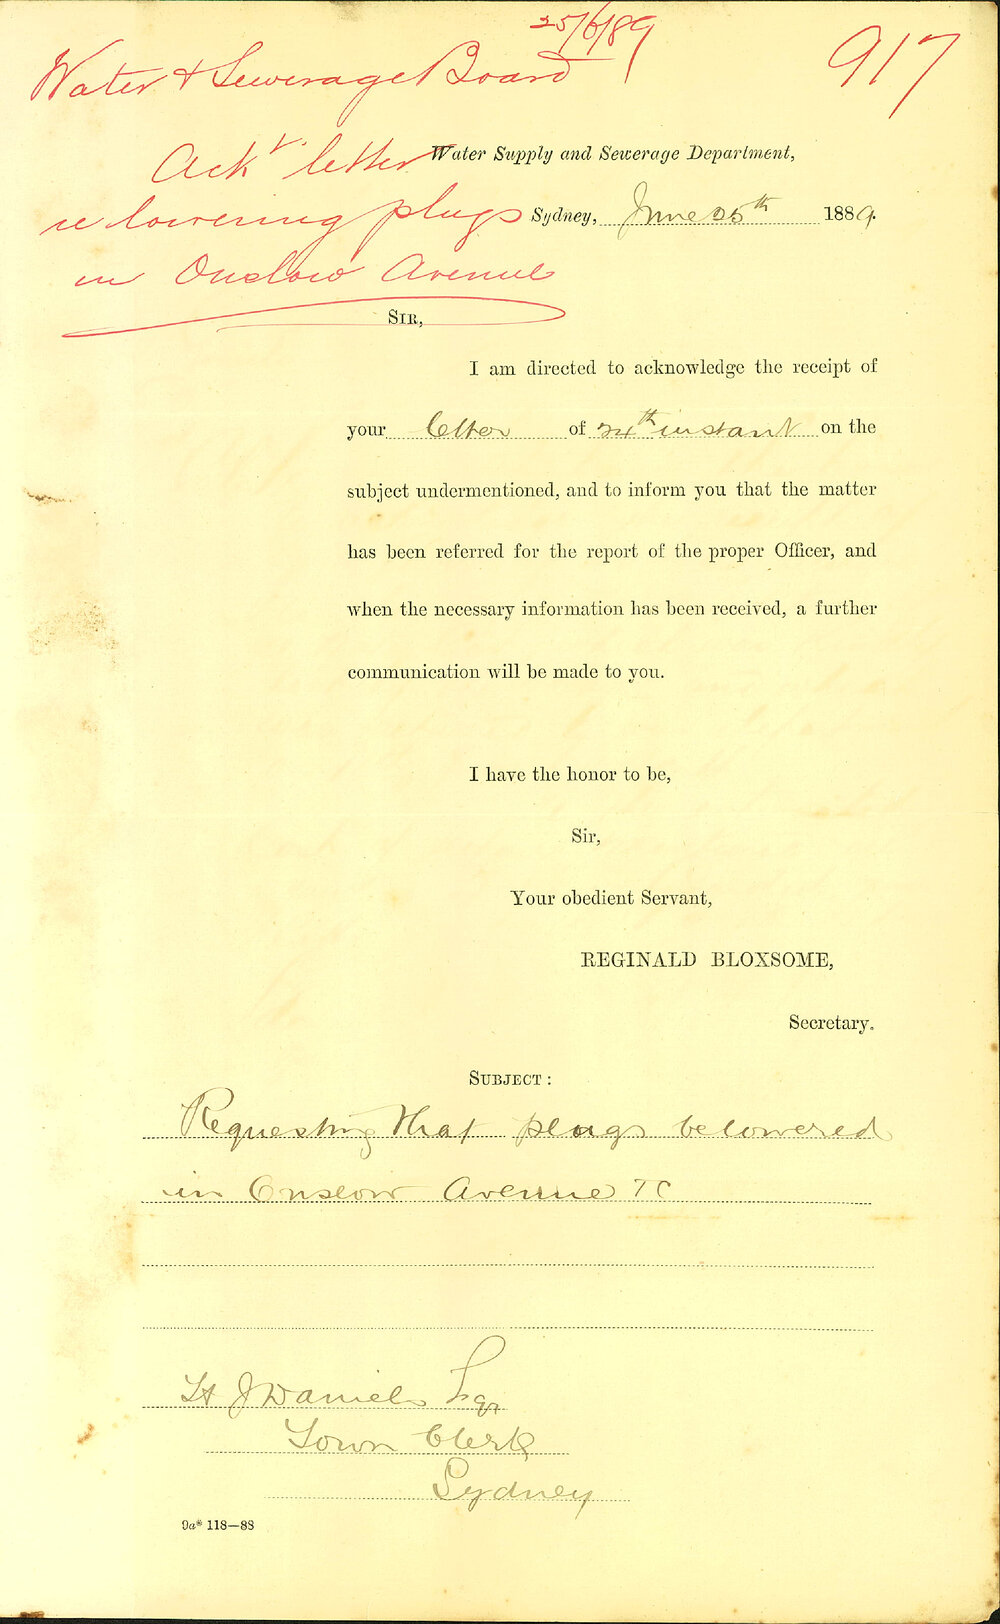 25/6/89
917
Water & Sewerage Board
Ackt. letter
re lowering plugs
in Onslow Avenue
Water Supply and Sewerage Department,
Sydney, June 25th 1889.
SIR,
I am directed to acknowledge the receipt of
your letter of 24th instant on the
subject undermentioned, and to inform you that the matter
has been referred for the report of the proper Officer, and
when the necessary information has been received, a further
communication will be made to you.
I have the honor to be,
Sir,
Your obedient Servant,
REGINALD BLOXSOME,
Secretary.
SUBJECT:
Requesting that plugs be lowered
in Onslow Avenue
H J Daniels Esqr
Town Clerk
Sydney
9a* 118—88